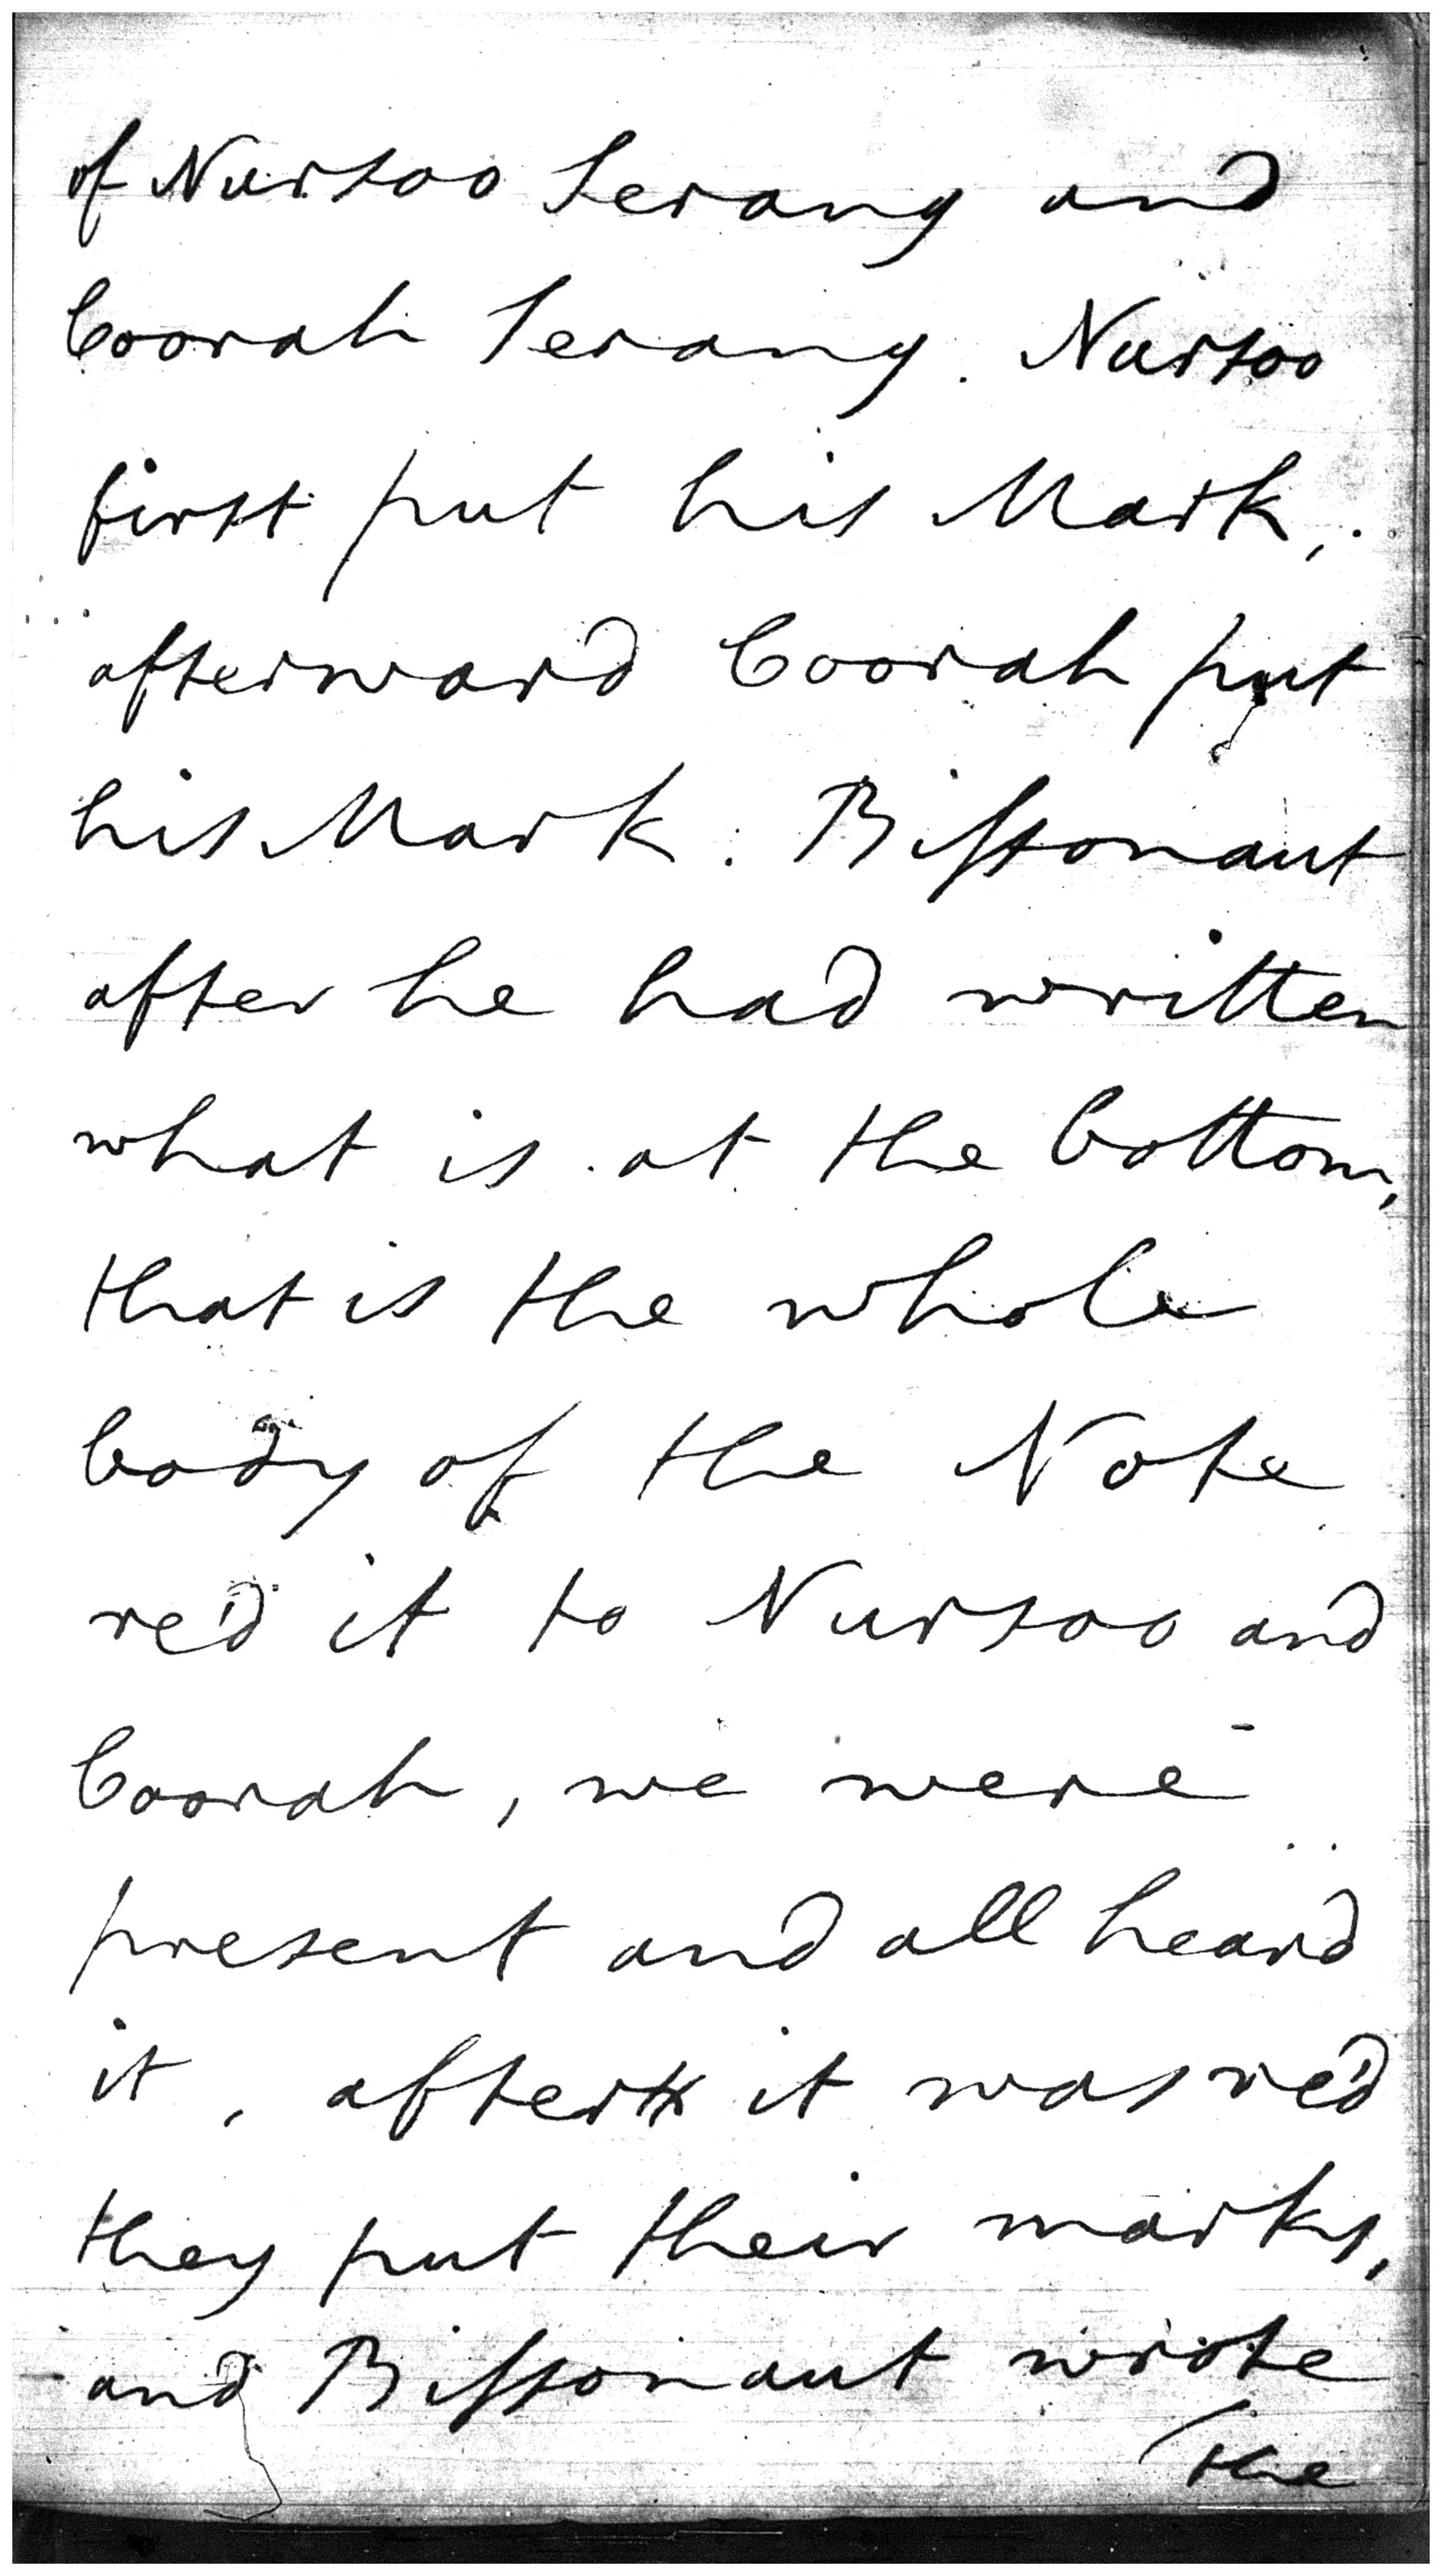 of Nursoo Serang and
Coorah Serang. Nursoo
first put his Mark,
afterward Coorah put
his Mark. Bissonaut
after he had written
what is at the bottom,
that is the whole
body of the Note
re'd it to Nursoo and
Coorah, we were
present and all heard
it, after it was re'd
they put their marks,
and Bissonaut wrote
the